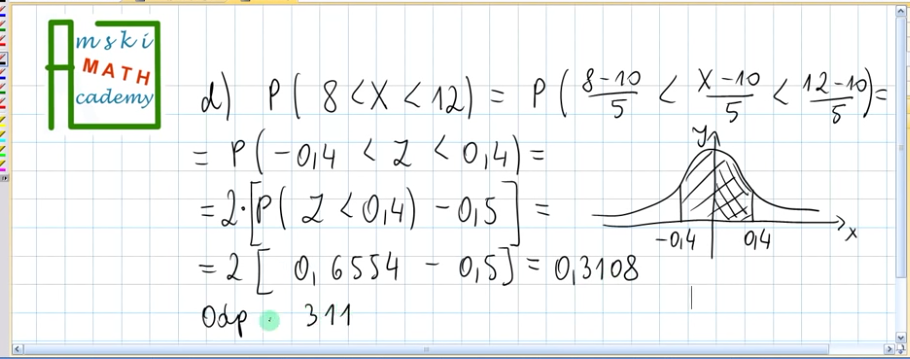 Amski
MATH
Academy
d) P( 8 < X < 12) = P( \frac{8-10}{5} < \frac{X-10}{5} < \frac{12-10}{5}) =
= P(-0,4 < Z < 0,4) =
= 2·[P( Z < 0,4) - 0,5] =
= 2 [ 0,6554 - 0,5] = 0,3108
Odp : 311
y
-0,4 0,4 x